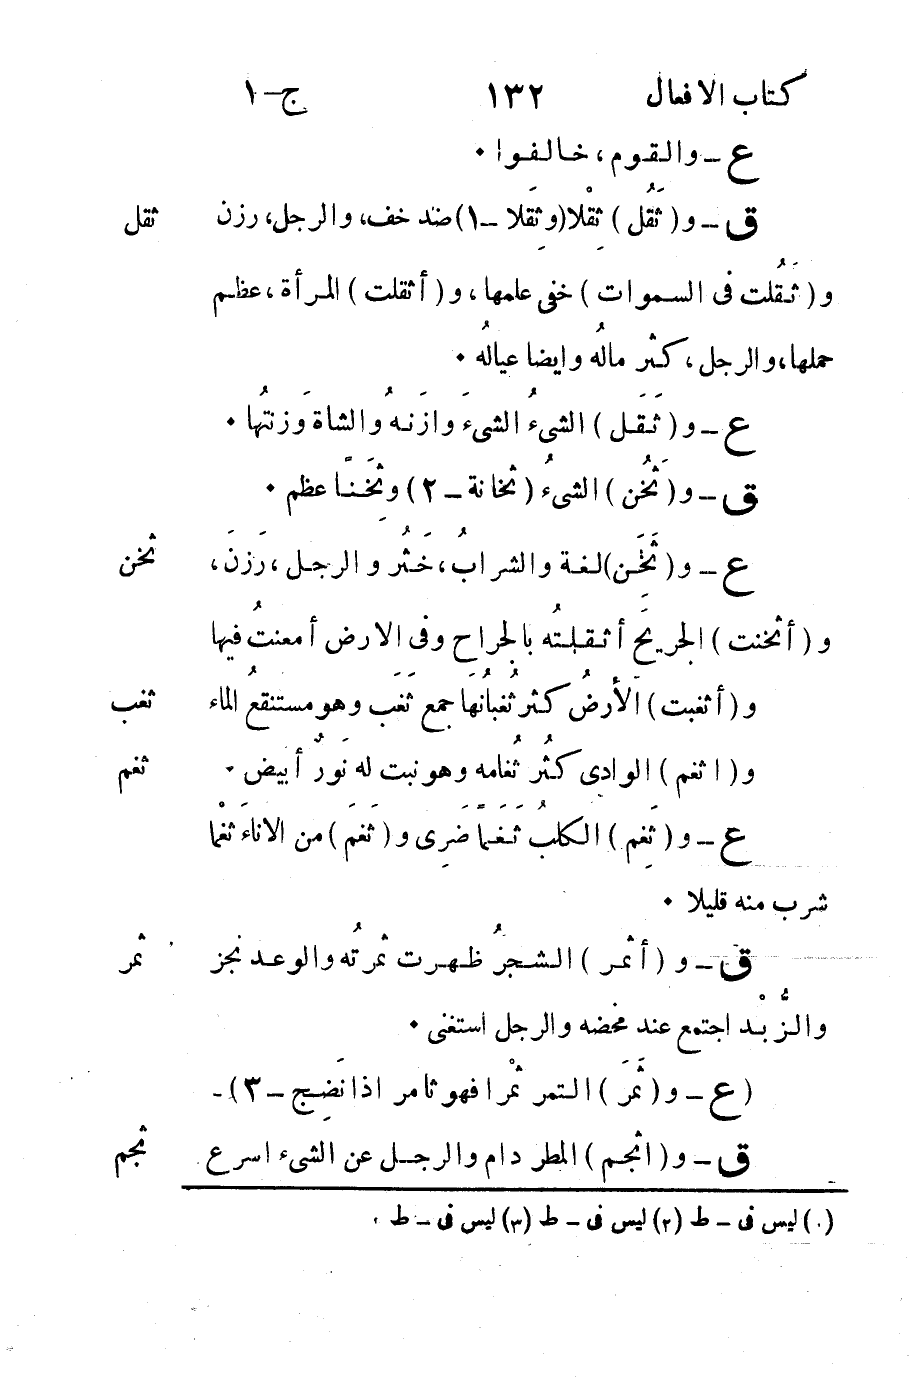 كتاب الافعال ١٣٢ ج-١
ع - والقوم، خالفوا •
ق - و ( ثَقُل ) ثِقْلا (وثِقَلا - ١) ضد خف، والرجل، رزن ثقل
و ( ثَقُلت فى السموات ) خفى علمها، و ( أثقلت ) المرأة، عظم
حملها، والرجل، كثر مالُه وايضا عيالُه •
ع - و ( ثَقَل ) الشىءُ الشىءَ وازَنهُ والشاةَ وَزنتُها •
ق - و ( ثَخُن ) الشىءُ ( ثخانة - ٢ ) وثِخَنًا عظم •
ع - و ( ثَخَن ) لغة والشرابُ، خَثُر والرجل، رَزنَ، ثخن
و ( أثخنت ) الجريحَ أثقلتُه بالجراح وفى الارض أمعنتُ فيها
و ( أثغبت ) الأرضُ كثر ثُغبانُها جمع ثَغَب وهو مستنقعُ الماء ثغب
و ( اثغم ) الوادى كثُر ثُغامه وهو نبت له نَورٌ أبيض - ثغم
ع - و ( ثَغِم ) الكلبُ ثَغَمًا ضَرِى و ( ثَغَم ) من الاناءَ ثغْما
شرب منه قليلا •
ق - و ( أثمر ) الشجرُ ظهرت ثمرتُه والوعد نجز ثمر
والزُّبْد اجتمع عند مخضه والرجل استغنى •
( ع - و ( ثمَرَ ) التمر ثمْرا فهو ثامر اذا نَضِج - ٣ ) -
ق - و ( اثجم ) المطر دام والرجل عن الشىء اسرع ثجم
(٠) ليس فى - ط (٢) ليس فى - ط (٣) ليس فى - ط